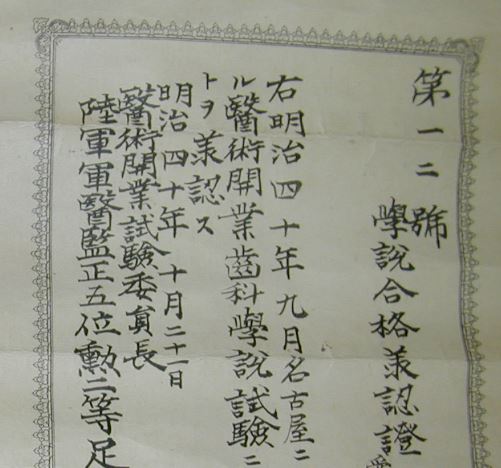 第一二號
學説合格兼認證
右明治四十年九月名古屋ニ
ル醫術開業齒科學説試驗ニ
トヲ兼認ス
明治四十年十月二十一日
醫術開業試驗委員長
陸軍軍醫監正五位勲二等足